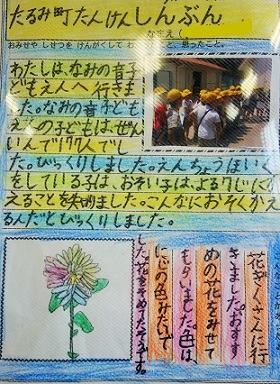 たるみ町たんけんしんぶん
なまえ(
おみせや しせつを けんがくして わ
と、思ったこと。
わたしは、なみの音子
どもえん人へ行きま
した。なみの音子ども
えんの子どもは、ぜん
いんで177人でし
た。びっくりしました。えんちょうほいく
をしている子は、おそい子は、よる7じにか
えることを知りました。こんなにおそくかえ
るんだとびっくりしました。
花ぎくさんに行
きました。おすす
めの花をみせて
もらいました。色は
にじの色みたいで
した。花をそめてたそうです。